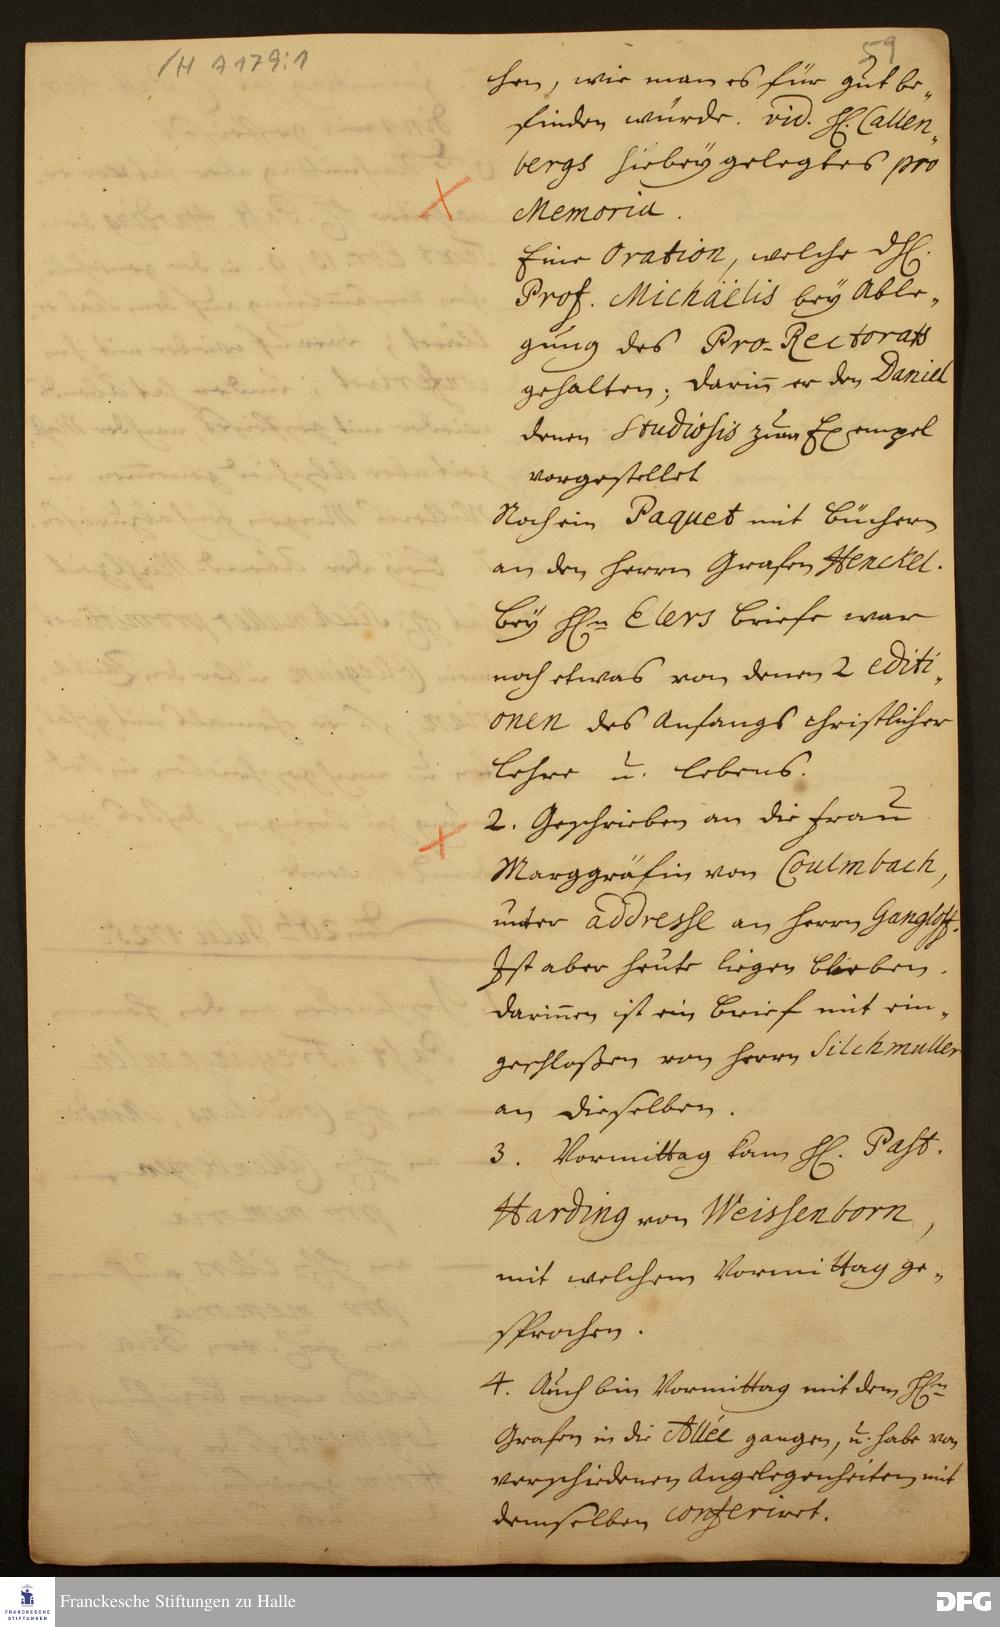 /H A 179:1
59
hen, wie man es für gut be„
finden würde. vid. H. Callen„
bergs hiebey gelegtes pro
Memoria.
Eine Oration, welche d H.
Prof. Michaëlis bey Able„
gung des Pro-Rectorats
gehalten; darin̄ er den Daniel
denen Studiosis zum Exempel
vorgestellet
Noch ein Paquet mit Büchern
an den Herrn Grafen Henckel.
Bey HEn Elers Briefe war
noch etwas von denen 2 editi„
onen des Anfangs christlicher
Lehre u. Lebens.
2. Geschrieben an die Frau
Marggräfin von Coulmbach,
unter addresse an Herrn Gangloff.
Ist aber heute liegen blieben.
Darin̄en ist ein Brief mit ein„
geschloßen von Herrn Silchmuller
an dieselben.
3. Vormittag kam H. Past.
Harding von Weissenborn,
mit welchem Vormittag ge„
sprochen.
4. Auch bin Vormittag mit dem HEn
Grafen in die Allée gangen, u. habe von
verschiedenen Angelegenheiten mit
demselben conferiret.
FRANCKESCHE
STIFTUNGEN
Franckesche Stiftungen zu Halle
DFG